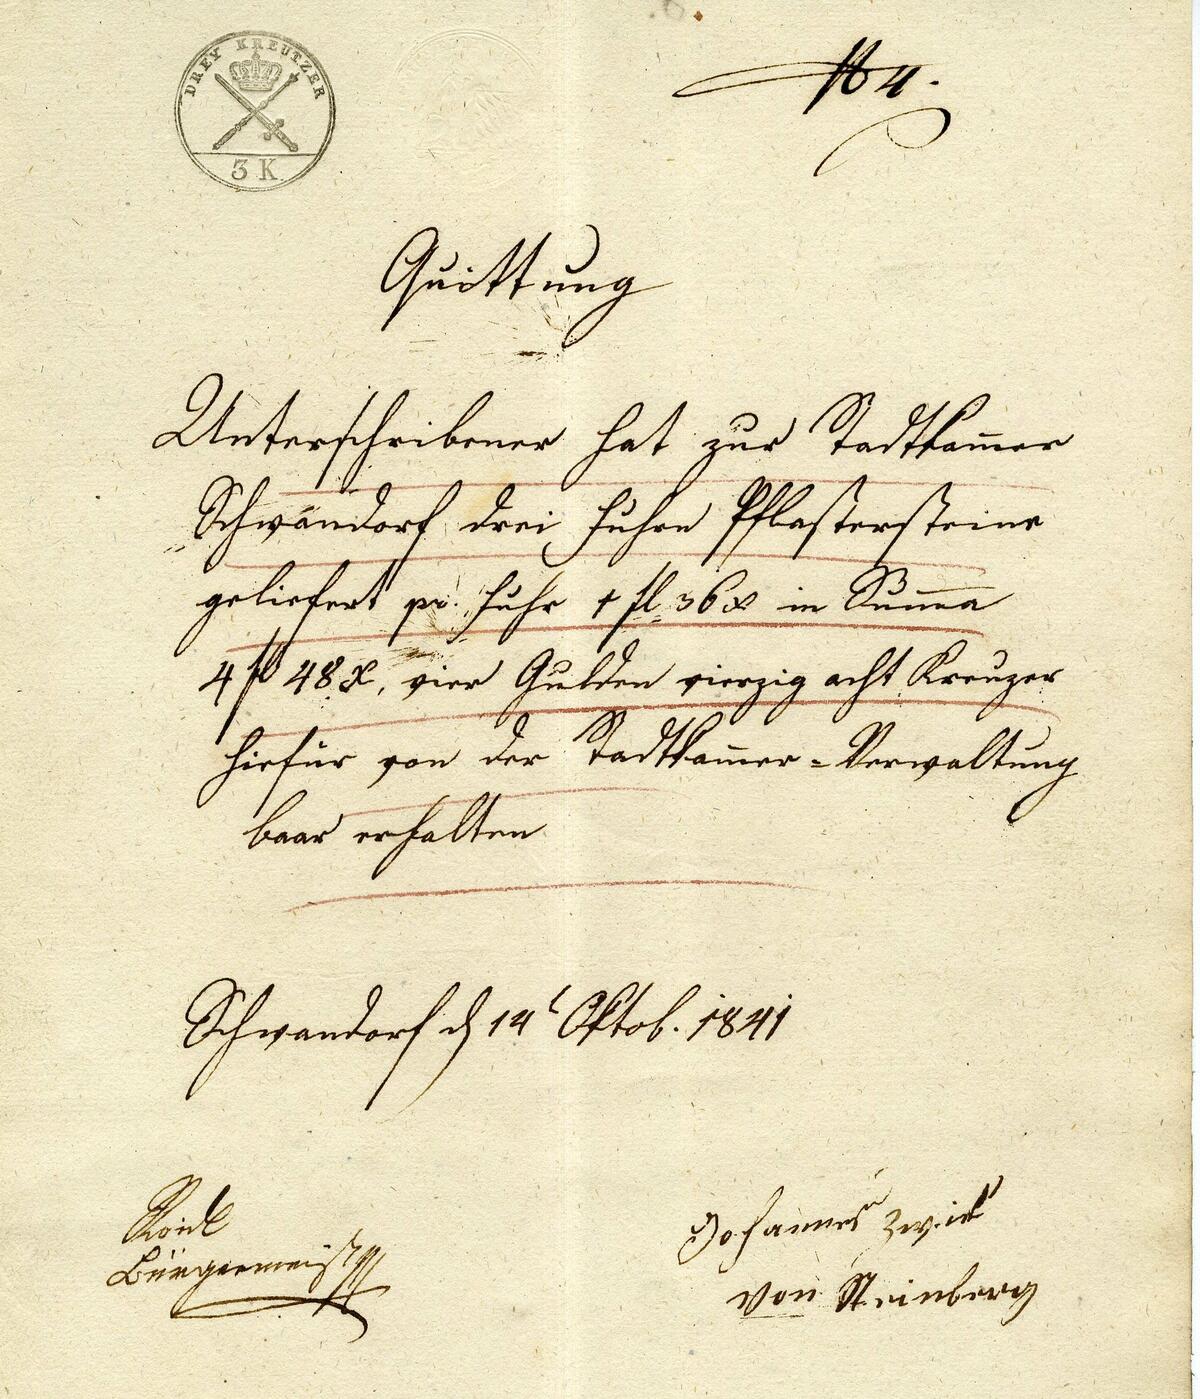 DREY KREUTZER
3 K
No 4.
Quittung
Unterschribener hat zur Stadtkam̅er
Schwandorf drei Fuhren Pflastersteine
geliefert pr. Fuhr 1 fl 36 x in Sum̅a
4 fl 48 x, vier Gulden vierzig acht Kreuzer
hiefür von der Stadtkam̅er=Verwaltung
baar erhalten
Schwandorf d 14t Oktob. 1841
Bürgermeister
Johannes Zwick
von Steinberg